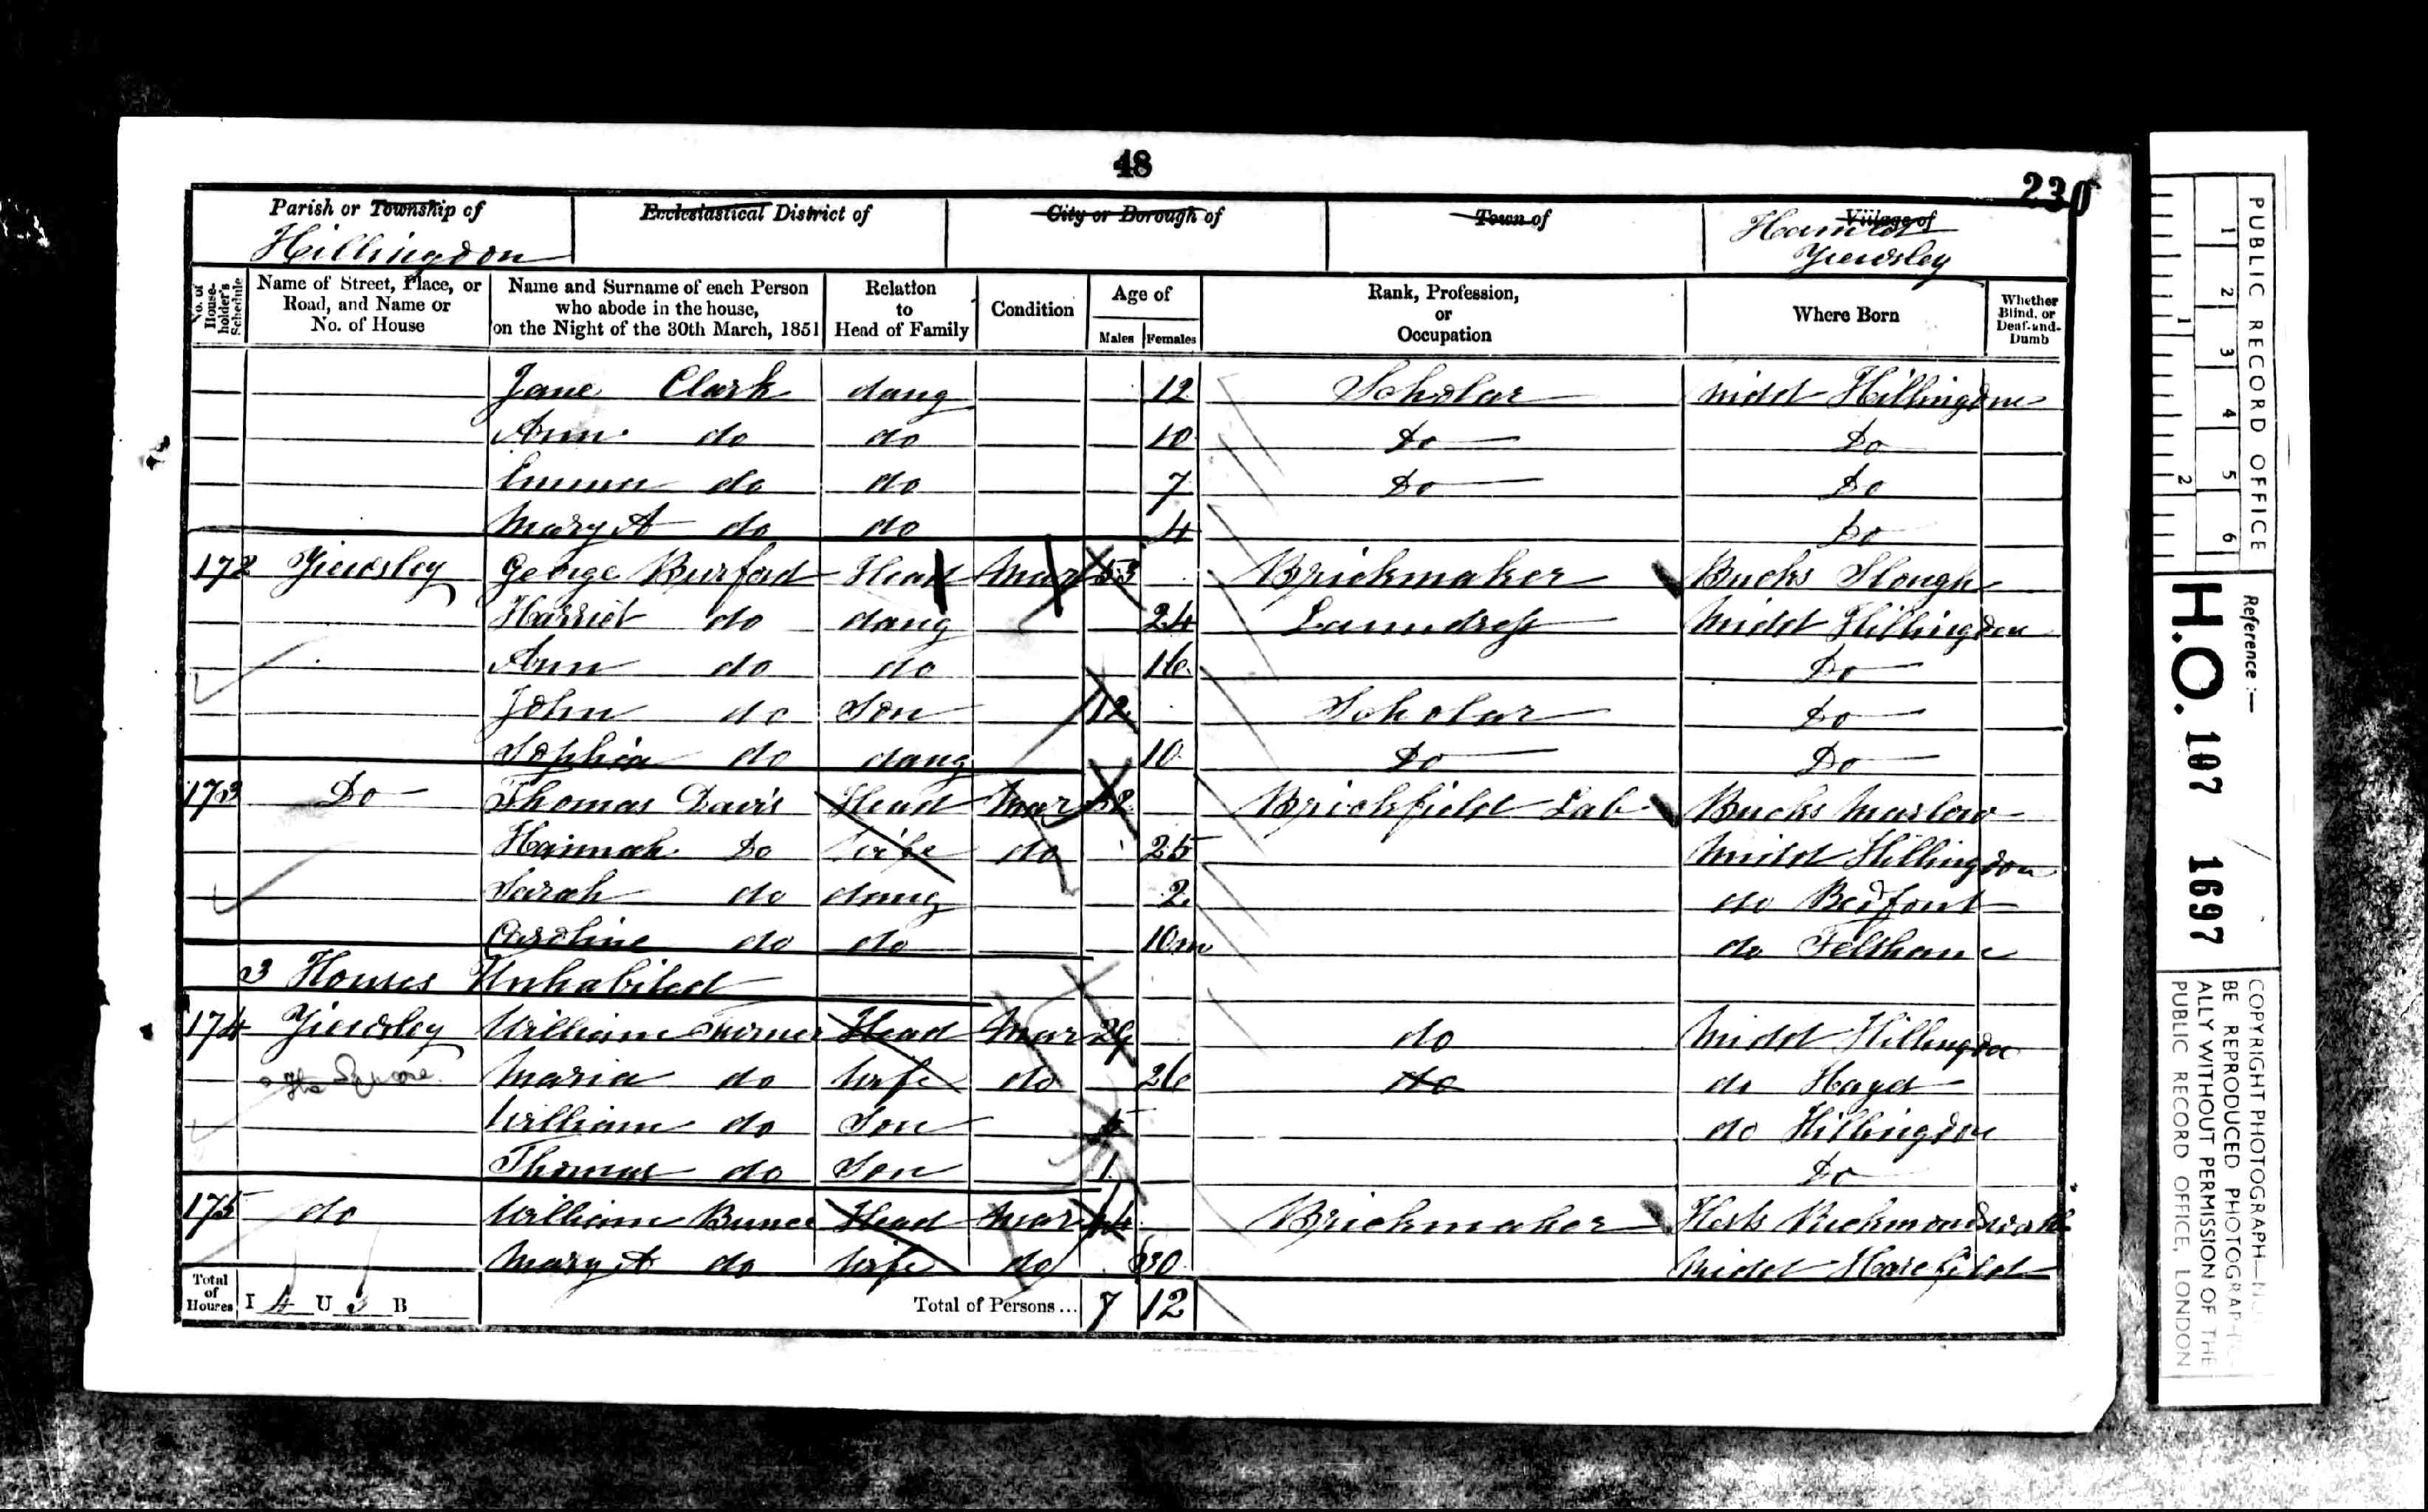 48
230
Parish or Township of
Hillingdon
Ecclesiastical District of
City or Borough of
Town of
Village of
Hamlet
Yiewsley
No. of House-holder's Schedule
Name of Street, Place, or Road, and Name or No. of House
Name and Surname of each Person who abode in the house, on the Night of the 30th March, 1851
Relation to Head of Family
Condition
Age of
Males Females
Rank, Profession, or Occupation
Where Born
Whether Blind, or Deaf-and-Dumb
Jane Clark daug 12 Scholar Midd Hillingdon
Ann do do 10 Do Do
Emma do do 7 Do Do
Mary A do do 4 Do
172 Yiewsley George Burford Head Mar 53 Brickmaker Bucks Slough
Harriet do daug 24 Laundress Midd Hillingdon
Ann do do 16 Do
John do Son 12 Scholar Do
Sophia do daug 10 Do Do
173 Do Thomas Davis Head Mar 32 Brickfield Lab Bucks Marlow
Hannah Do Wife do 25 Midd Hillingdon
Sarah do daug 2 do Bedfont
Caroline do do 10m do Feltham
3 Houses Unhabited
174 Yiewsley William Turner Head Mar do Midd Hillingdon
The Square Maria do Wife do 26 do do Hayes
William do Son 5 do Hillingdon
Thomas do Son 1 Do
175 do William Bunce Head Mar 44 Brickmaker Herts Rickmondsworth
Mary A do Wife do 30 Midd Harefield
Total of Houses I 4 U 3 B
Total of Persons... 7 12
PUBLIC RECORD OFFICE
1 2 3 4 5 6
1 2
Reference :-
H.O. 107 1697
COPYRIGHT PHOTOGRAPH—NOT
BE REPRODUCED PHOTOGRAPHIC-
ALLY WITHOUT PERMISSION OF THE
PUBLIC RECORD OFFICE, LONDON